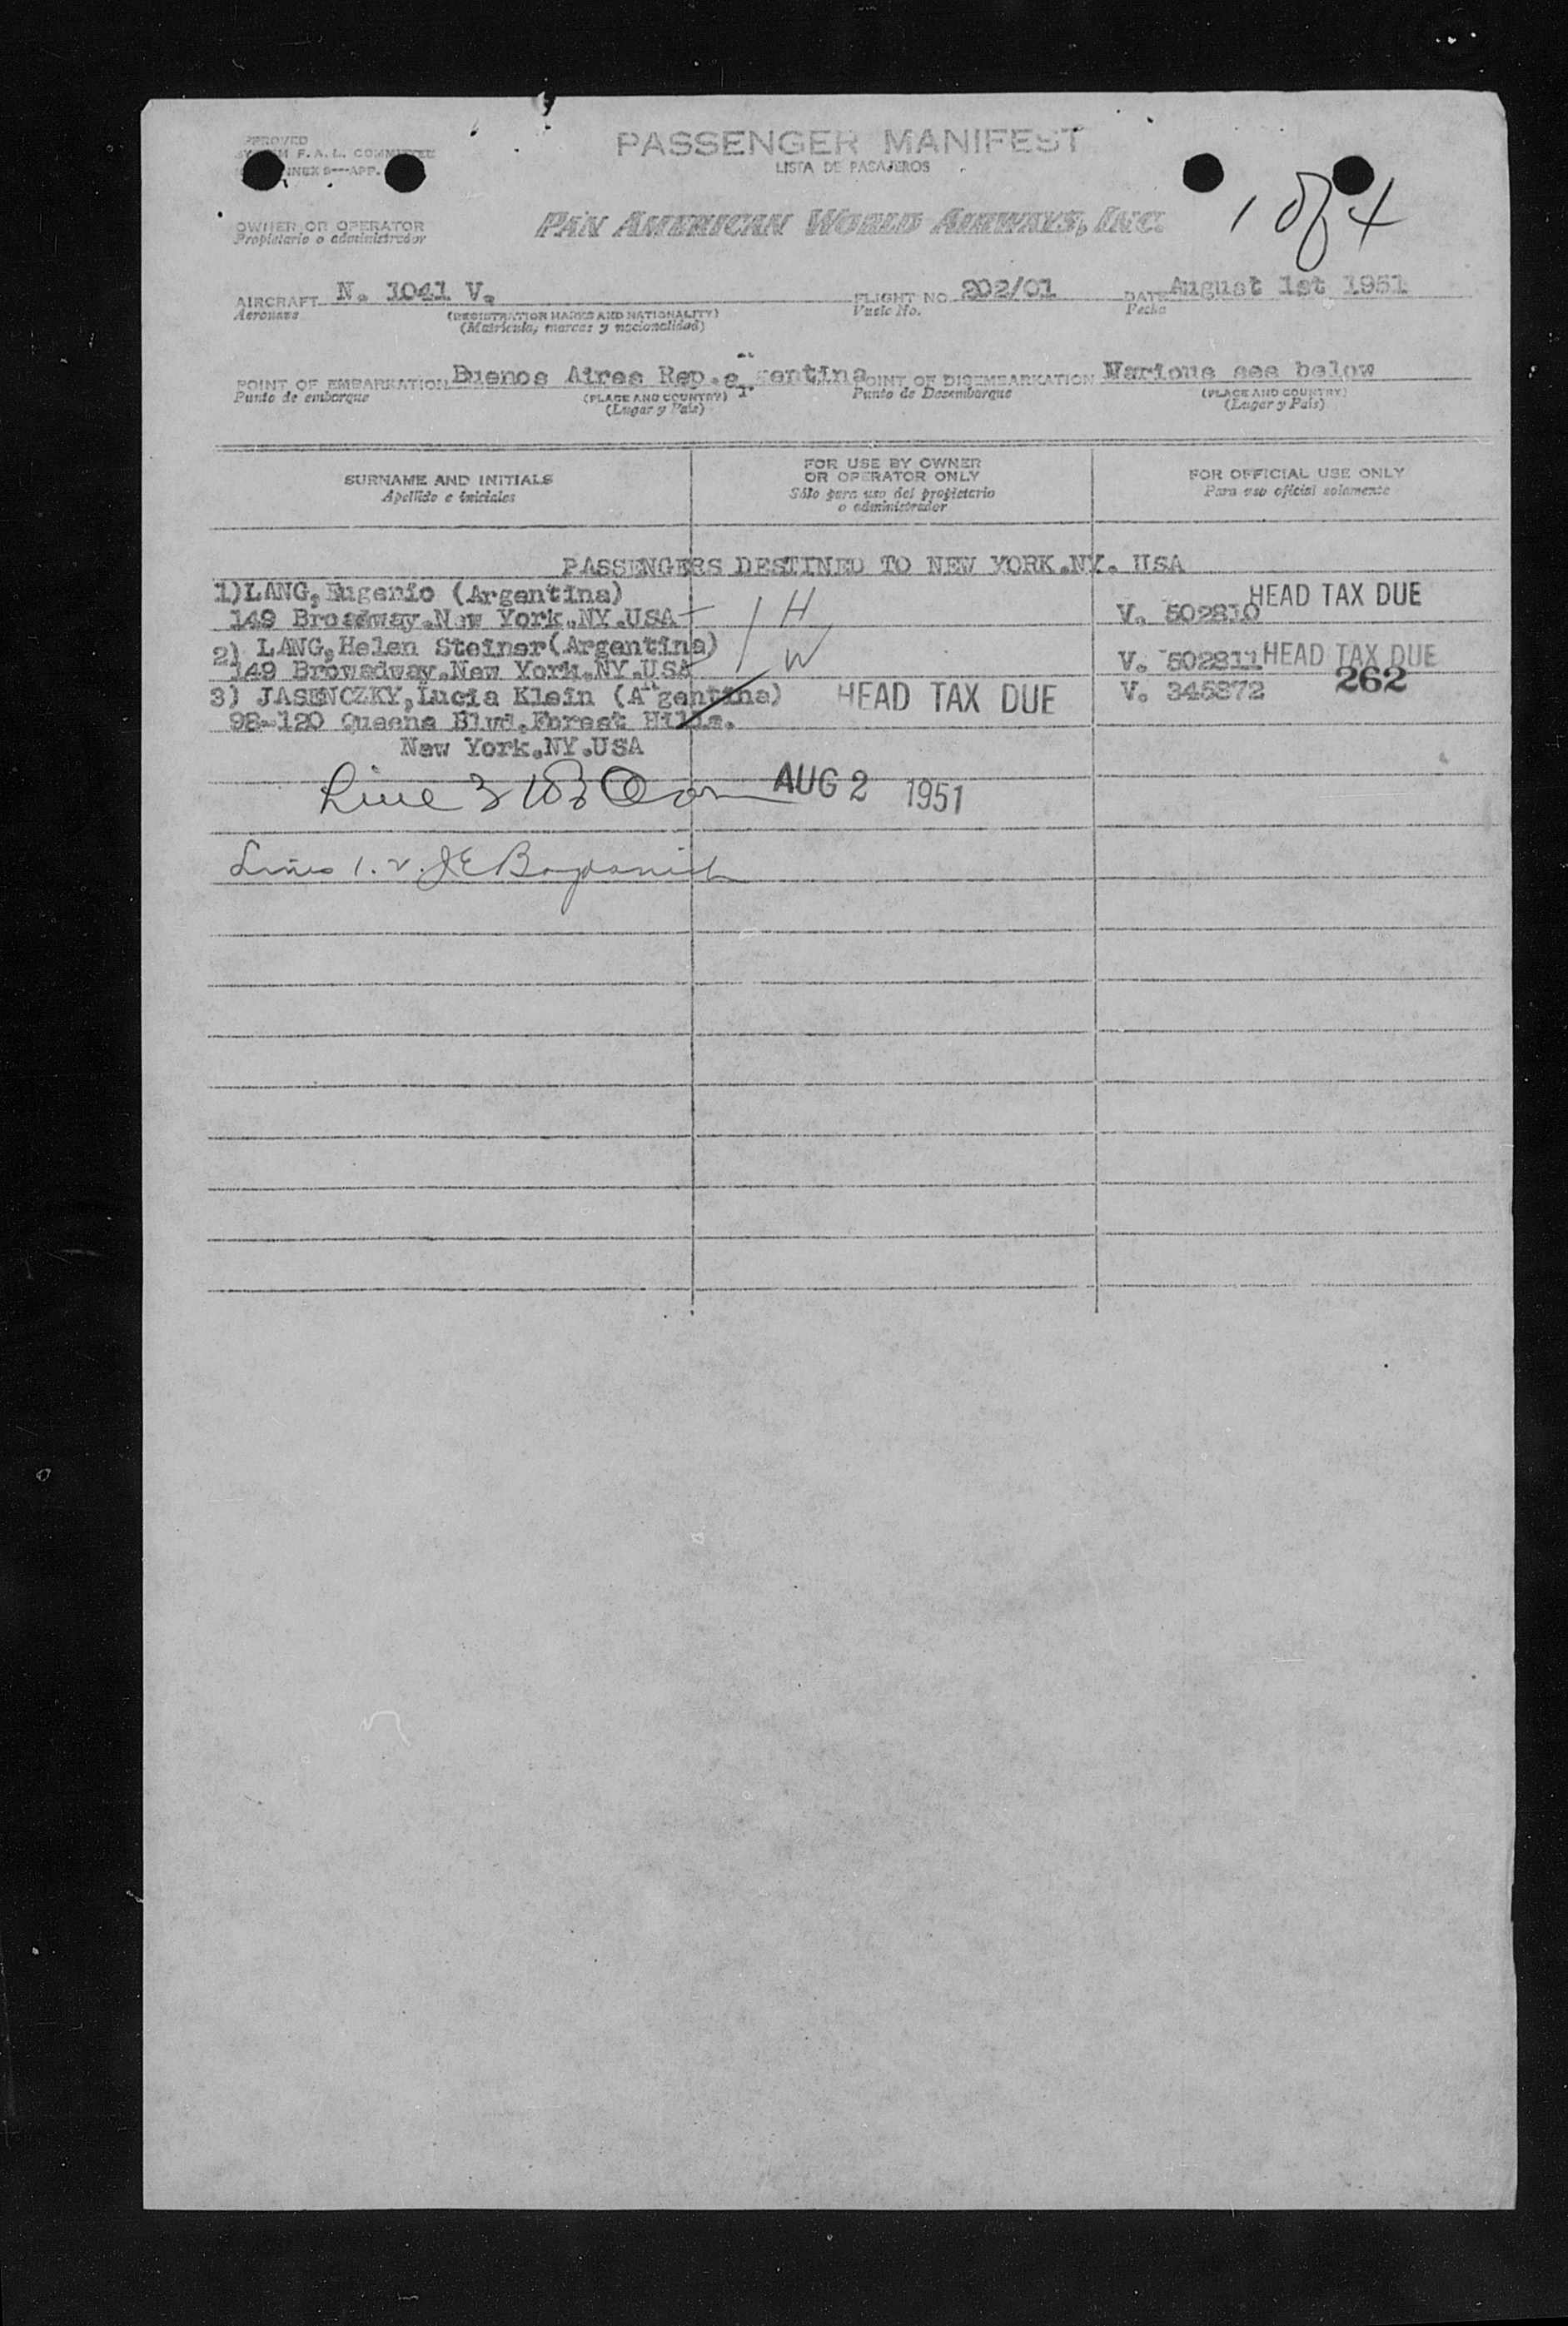 PASSENGER MANIFEST
LISTA DE PASAJEROS
F. A. L. COMMITTEE
OWNER OR OPERATOR
Propietario o administrador
PAN AMERICAN WORLD AIRWAYS, INC.
1 of 4
AIRCRAFT N. 1041 V.
Aeronave
(REGISTRATION MARKS AND NATIONALITY)
(Matrícula, marcas y nacionalidad)
FLIGHT NO. 202/01
Vuelo No.
DATE August 1st 1951
Fecha
POINT OF EMBARKATION Buenos Aires Rep.
Punto de embarque
(PLACE AND COUNTRY)
(Lugar y País)
POINT OF DISEMBARKATION Warious see below
Punto de Desembarque
(PLACE AND COUNTRY)
(Lugar y País)
SURNAME AND INITIALS
Apellido e iniciales
FOR USE BY OWNER
OR OPERATOR ONLY
Sólo para uso del propietario
o administrador
FOR OFFICIAL USE ONLY
Para uso oficial solamente
PASSENGERS DESTINED TO NEW YORK.NY. USA
1)LANG,Eugenio (Argentina)
149 Broadway.New York.NY.USA H V. 502810 HEAD TAX DUE
2) LANG,Helen Steiner(Argentina)
149 Browadway.New York.NY.USA W V. 502811 HEAD TAX DUE
3) JASENCZKY,Lucia Klein (Argentina) HEAD TAX DUE V. 345872 262
98-120 Queens Blvd.Forest Hills.
New York.NY.USA
Line 3 AUG 2 1951
Lines 1. 2.